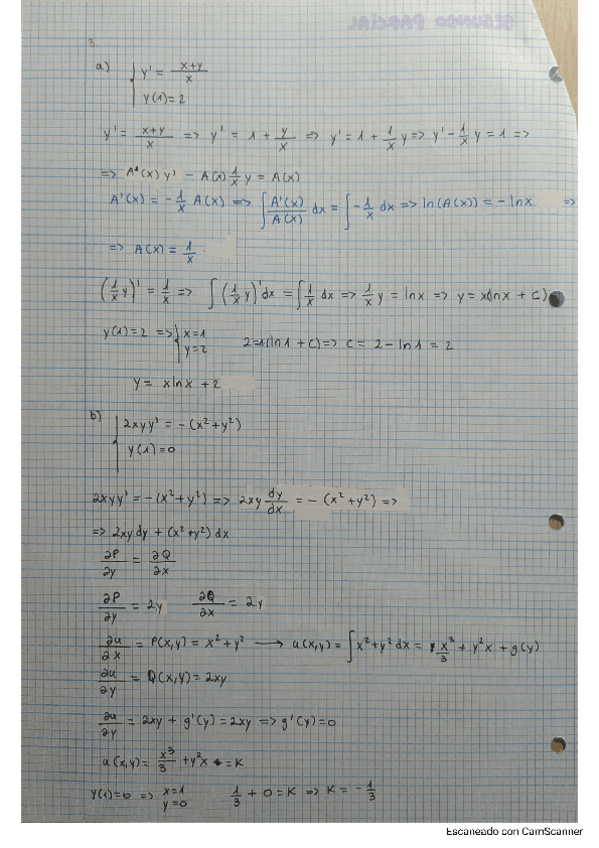 3.
a) { y' = x+y / x
y(1)=2
y' = x+y / x => y' = 1 + y/x => y' = 1 + 1/x y => y' - 1/x y = 1 =>
=> A(x) y' - A(x) 1/x y = A(x)
A'(x) = - 1/x A(x) => ∫ A'(x)/A(x) dx = ∫ - 1/x dx => ln(A(x)) = - ln x =>
=> A(x) = 1/x
(1/x y)' = 1/x => ∫ (1/x y)' dx = ∫ 1/x dx => 1/x y = ln x => y = x(ln x + C)
y(1) = 2 => { x=1
y=2
2=1(ln 1 + C) => C = 2 - ln 1 = 2
y = x ln x + 2
b) { 2xyy' = - (x² + y²)
y(1) = 0
2xyy' = - (x² + y²) => 2xy dy/dx = - (x² + y²) =>
=> 2xy dy + (x² + y²) dx
∂P/∂y = ∂Q/∂x
∂P/∂y = 2y ∂Q/∂x = 2y
∂u/∂x = P(x,y) = x² + y² → u(x,y) = ∫ x² + y² dx = x³/3 + y²x + g(y)
∂u/∂y = Q(x,y) = 2xy
∂u/∂y = 2xy + g'(y) = 2xy => g'(y) = 0
u(x,y) = x³/3 + y²x = K
y(1)=0 => x=1
y=0
1/3 + 0 = K => K = - 1/3
Escaneado con CamScanner